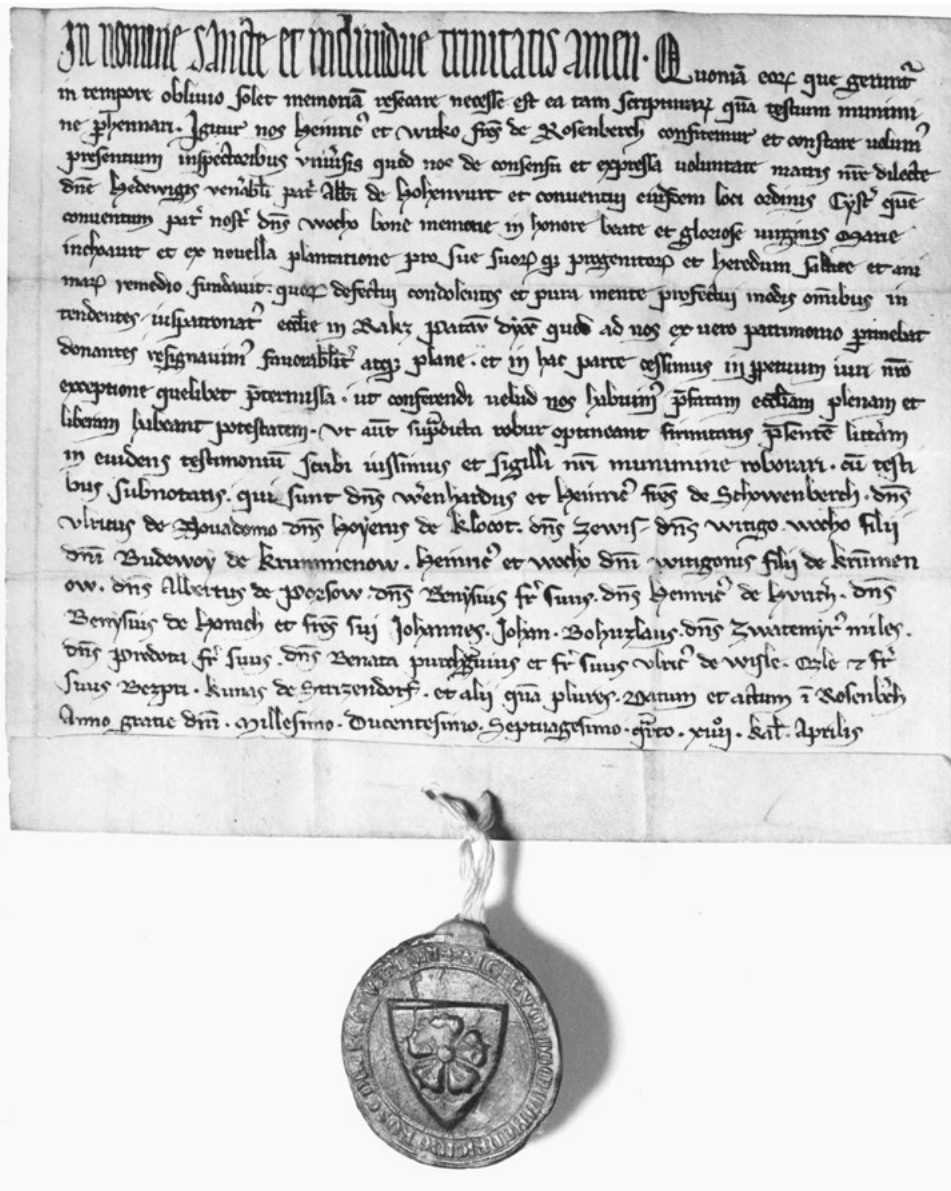 In nomine sancte et individue trinitatis amen · Quoniā eorꝝ que gerunt᷑
in tempore oblivio solet memoriā resecare necesse est ea tam scripturarꝝ quā testium munimi
ne ꝑhennari · Igitur nos Heinric᷒ et witko frēs de Rosenberch confitemur et constare volum᷒
presentium inspectoribus vniu᷑sis quod nos de consensu et expressa voluntate matris nr̄e dilecte
dn̄e Hedewigis ven᷑abili pat᷑ Abbi de Hohenvurt et conventui eiusdem loci ordinis Cyst᷑ quē
conventum pat᷑ nost᷑ dn̄s wocho bone memorie in honore beate et gloriose virginis Marie
inchoavit et ex novella plantatione pro sue suorꝝ qꝫ progenitorꝝ et heredum salute et ani
marꝝ remedio fundavit · quorꝝ defectui condolentes et pura mente profectui modis om̄ibus in
tendentes iuspatronat᷒ eccl̄ie in Rakz patav᷑ dyoc᷑ quod ad nos ex vero patrimonio ꝑtinebat
donantes resignavim᷒ favorabilit᷑ atqꝫ plane · et in hac parte cessimus in ꝑpetuum iuri nr̄o
exceptione quelibet p̄termissa · ut conferendi velud nos habuim᷒ p̄fatam eccl̄iam plenam et
liberam habeant potestatem · Vt aūt sup᷑dicta robur optineant firmitatis p̄sentē litt᷑am
in evidens testimoniū scribi iussimus et sigilli nr̄i munimine roborari · cū testi
bus subnotatis · qui sunt dn̄s wernhardus et Heinric᷒ frēs de Schowenberch · dn̄s
vlricus de Novadomo dn̄s Hoyerus de Klocot · dn̄s Zewis dn̄s witigo wocho filii
dn̄i Budewoy de Krummenow · Heinric᷒ et wocho dn̄i witigonis filii de krūmen
ow · dn̄s Albertus de Porsow · dn̄s Benysius fr᷑ suus · dn̄s Heinric᷒ de · dn̄s
Benysius de et frēs sui Johannes · Johan · Bohuzlaus · dn̄s Zwatemyr᷒ miles ·
dn̄s Predota fr᷑ suus · dn̄s Benata purchgravius et fr᷑ suus vlric᷒ de wisle · et fr᷑
suus · de · et alij quā plures · Datum et actum ī Rosenb᷑ch
Anno gratie dn̄i · Millesimo · Ducentesimo · Septuagesimo · q᷑rto · kal̄ · Aprilis